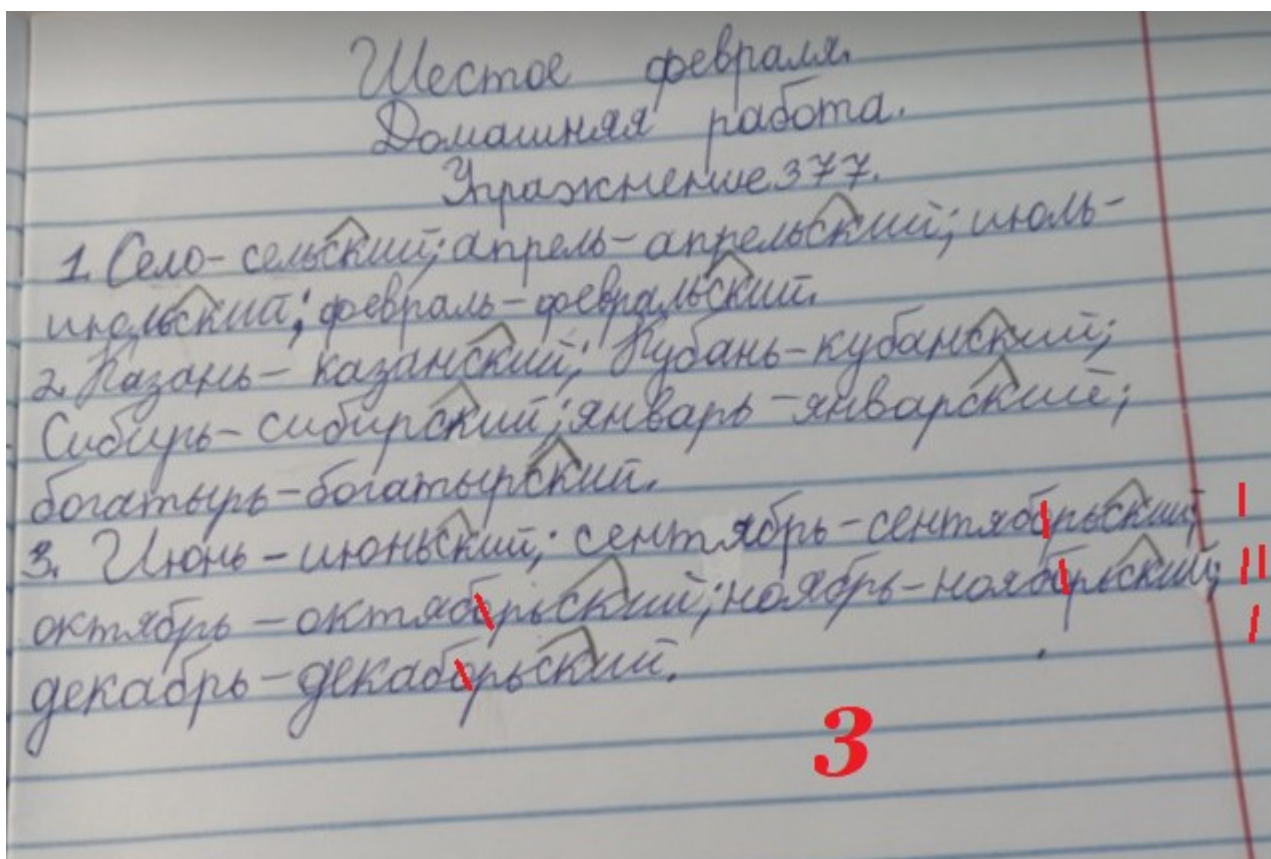 Шестое февраля.
Домашняя работа.
Упражнение 377.
1. Село - сельский; апрель - апрельский; июль -
июльский; февраль - февральский.
2. Казань - казанский; Кубань - кубанский;
Сибирь - сибирский; январь - январский;
богатырь - богатырский.
3. Июнь - июньский; сентябрь - сентябрьский; I
октябрь - октябрьский; ноябрь - ноябрьский; II
декабрь - декабрьский. I
3